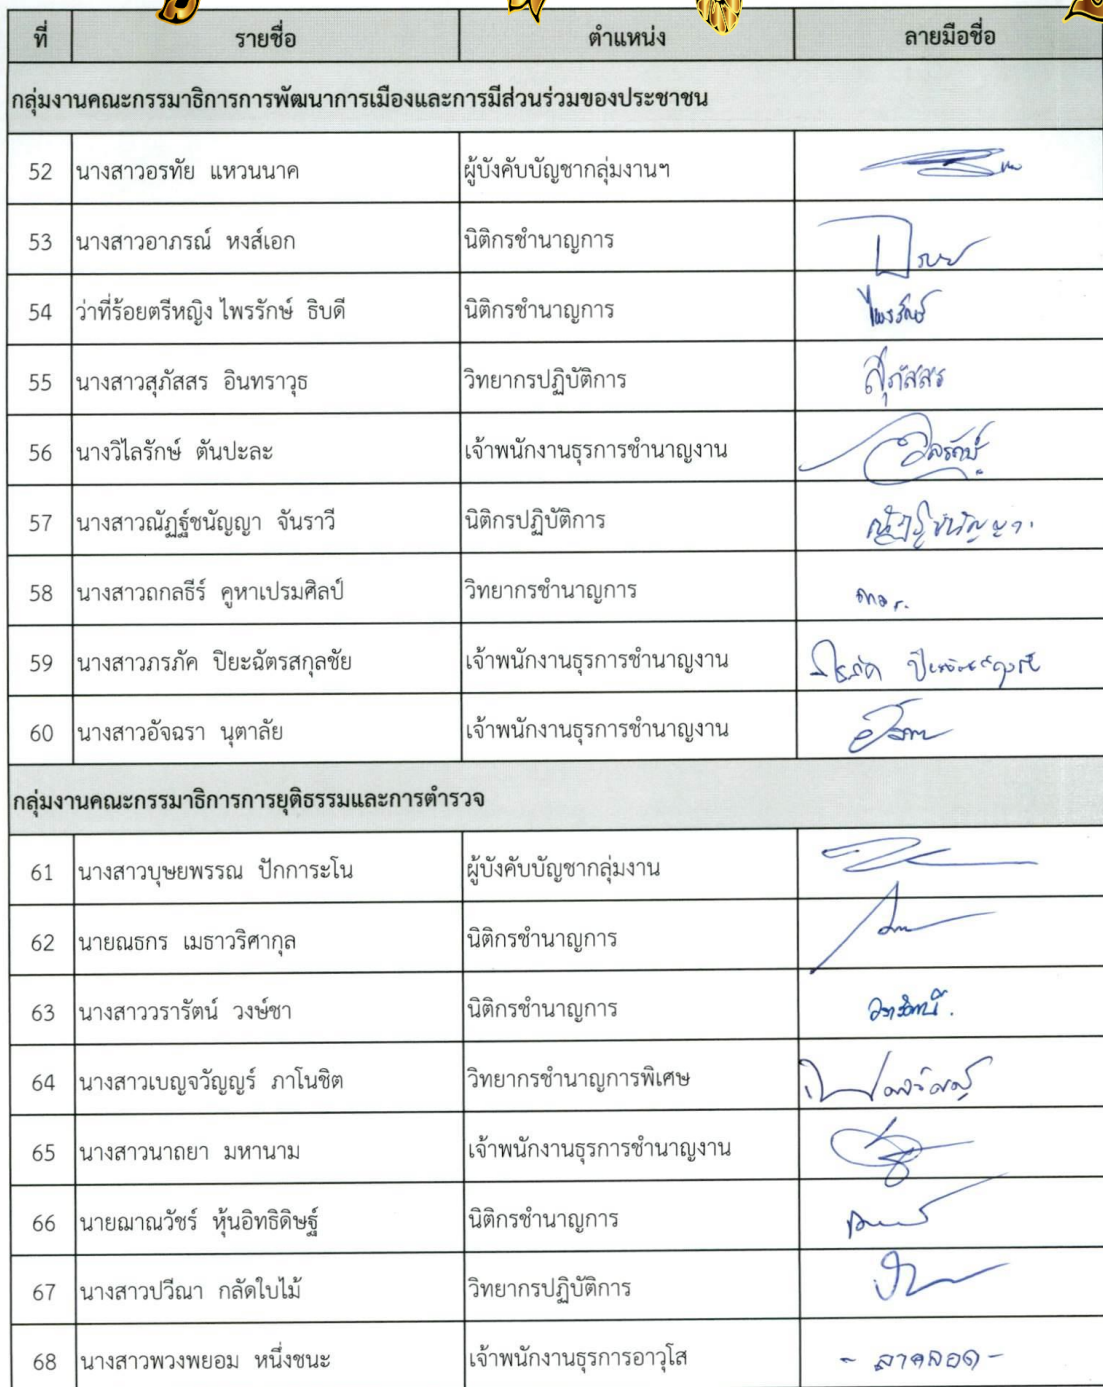 ที่ รายชื่อ ตำแหน่ง ลายมือชื่อ
กลุ่มงานคณะกรรมาธิการการพัฒนาการเมืองและการมีส่วนร่วมของประชาชน
52 นางสาวอรทัย แหวนนาค ผู้บังคับบัญชากลุ่มงานฯ
53 นางสาวอาภรณ์ หงส์เอก นิติกรชำนาญการ
54 ว่าที่ร้อยตรีหญิง ไพรรักษ์ ธิบดี นิติกรชำนาญการ ไพรรักษ์
55 นางสาวสุภัสสร อินทราวุธ วิทยากรปฏิบัติการ สุภัสสร
56 นางวิไลรักษ์ ตันปะละ เจ้าพนักงานธุรการชำนาญงาน วิไลรักษ์
57 นางสาวณัฏฐ์ชนัญญา จันราวี นิติกรปฏิบัติการ ณัฏฐ์ชนัญญา
58 นางสาวถกลธีร์ คูหาเปรมศิลป์ วิทยากรชำนาญการ
59 นางสาวภรภัค ปิยะฉัตรสกุลชัย เจ้าพนักงานธุรการชำนาญงาน ภรภัค ปิยะฉัตรสกุลชัย
60 นางสาวอัจฉรา นุตาลัย เจ้าพนักงานธุรการชำนาญงาน
กลุ่มงานคณะกรรมาธิการการยุติธรรมและการตำรวจ
61 นางสาวบุษยพรรณ ปักการะโน ผู้บังคับบัญชากลุ่มงาน
62 นายณธกร เมธาวริศากุล นิติกรชำนาญการ
63 นางสาววรารัตน์ วงษ์ชา นิติกรชำนาญการ วรารัตน์
64 นางสาวเบญจวัญญร์ ภาโนชิต วิทยากรชำนาญการพิเศษ
65 นางสาวนาถยา มหานาม เจ้าพนักงานธุรการชำนาญงาน
66 นายฌาณวัชร์ หุ้นอิทธิดิษฐ์ นิติกรชำนาญการ
67 นางสาวปวีณา กลัดใบไม้ วิทยากรปฏิบัติการ
68 นางสาวพวงพยอม หนึ่งชนะ เจ้าพนักงานธุรการอาวุโส - ลาคลอด -